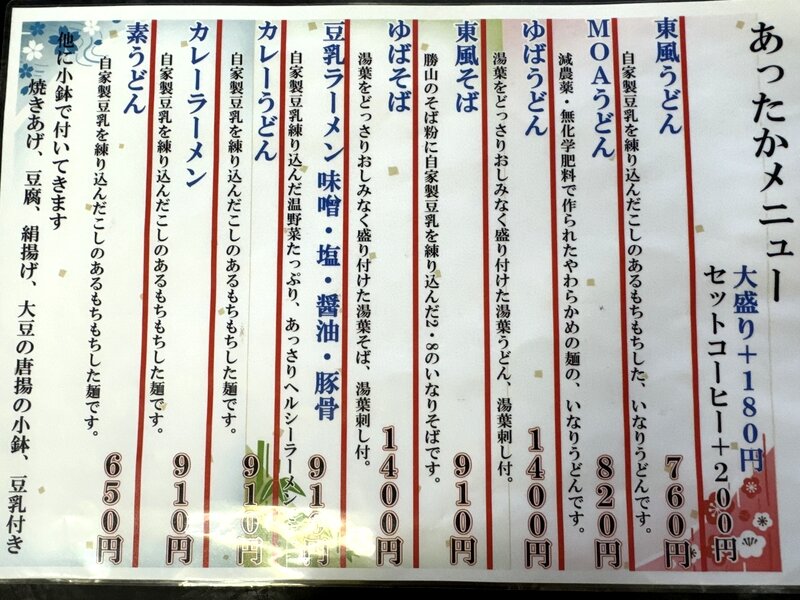 あったかメニュー
大盛り+180円
セットコーヒー+200円
東風うどん
自家製豆乳を練り込んだこしのあるもちもちした、いなりうどんです。
760円
MOAうどん
減農薬・無化学肥料で作られたやわらかめの麺の、いなりうどんです。
820円
ゆばうどん
湯葉をどっさりおしみなく盛り付けた湯葉うどん、湯葉刺し付。
1400円
東風そば
勝山のそば粉に自家製豆乳を練り込んだ2・8のいなりそばです。
910円
ゆばそば
湯葉をどっさりおしみなく盛り付けた湯葉そば、湯葉刺し付。
1400円
豆乳ラーメン 味噌・塩・醤油・豚骨
自家製豆乳練り込んだ温野菜たっぷり、あっさりヘルシーラーメン
910円
カレーうどん
自家製豆乳を練り込んだこしのあるもちもちした麺です。
910円
カレーラーメン
自家製豆乳を練り込んだこしのあるもちもちした麺です。
910円
素うどん
自家製豆乳を練り込んだこしのあるもちもちした麺です。
650円
他に小鉢で付いてきます
焼きあげ、豆腐、絹揚げ、大豆の唐揚の小鉢、豆乳付き